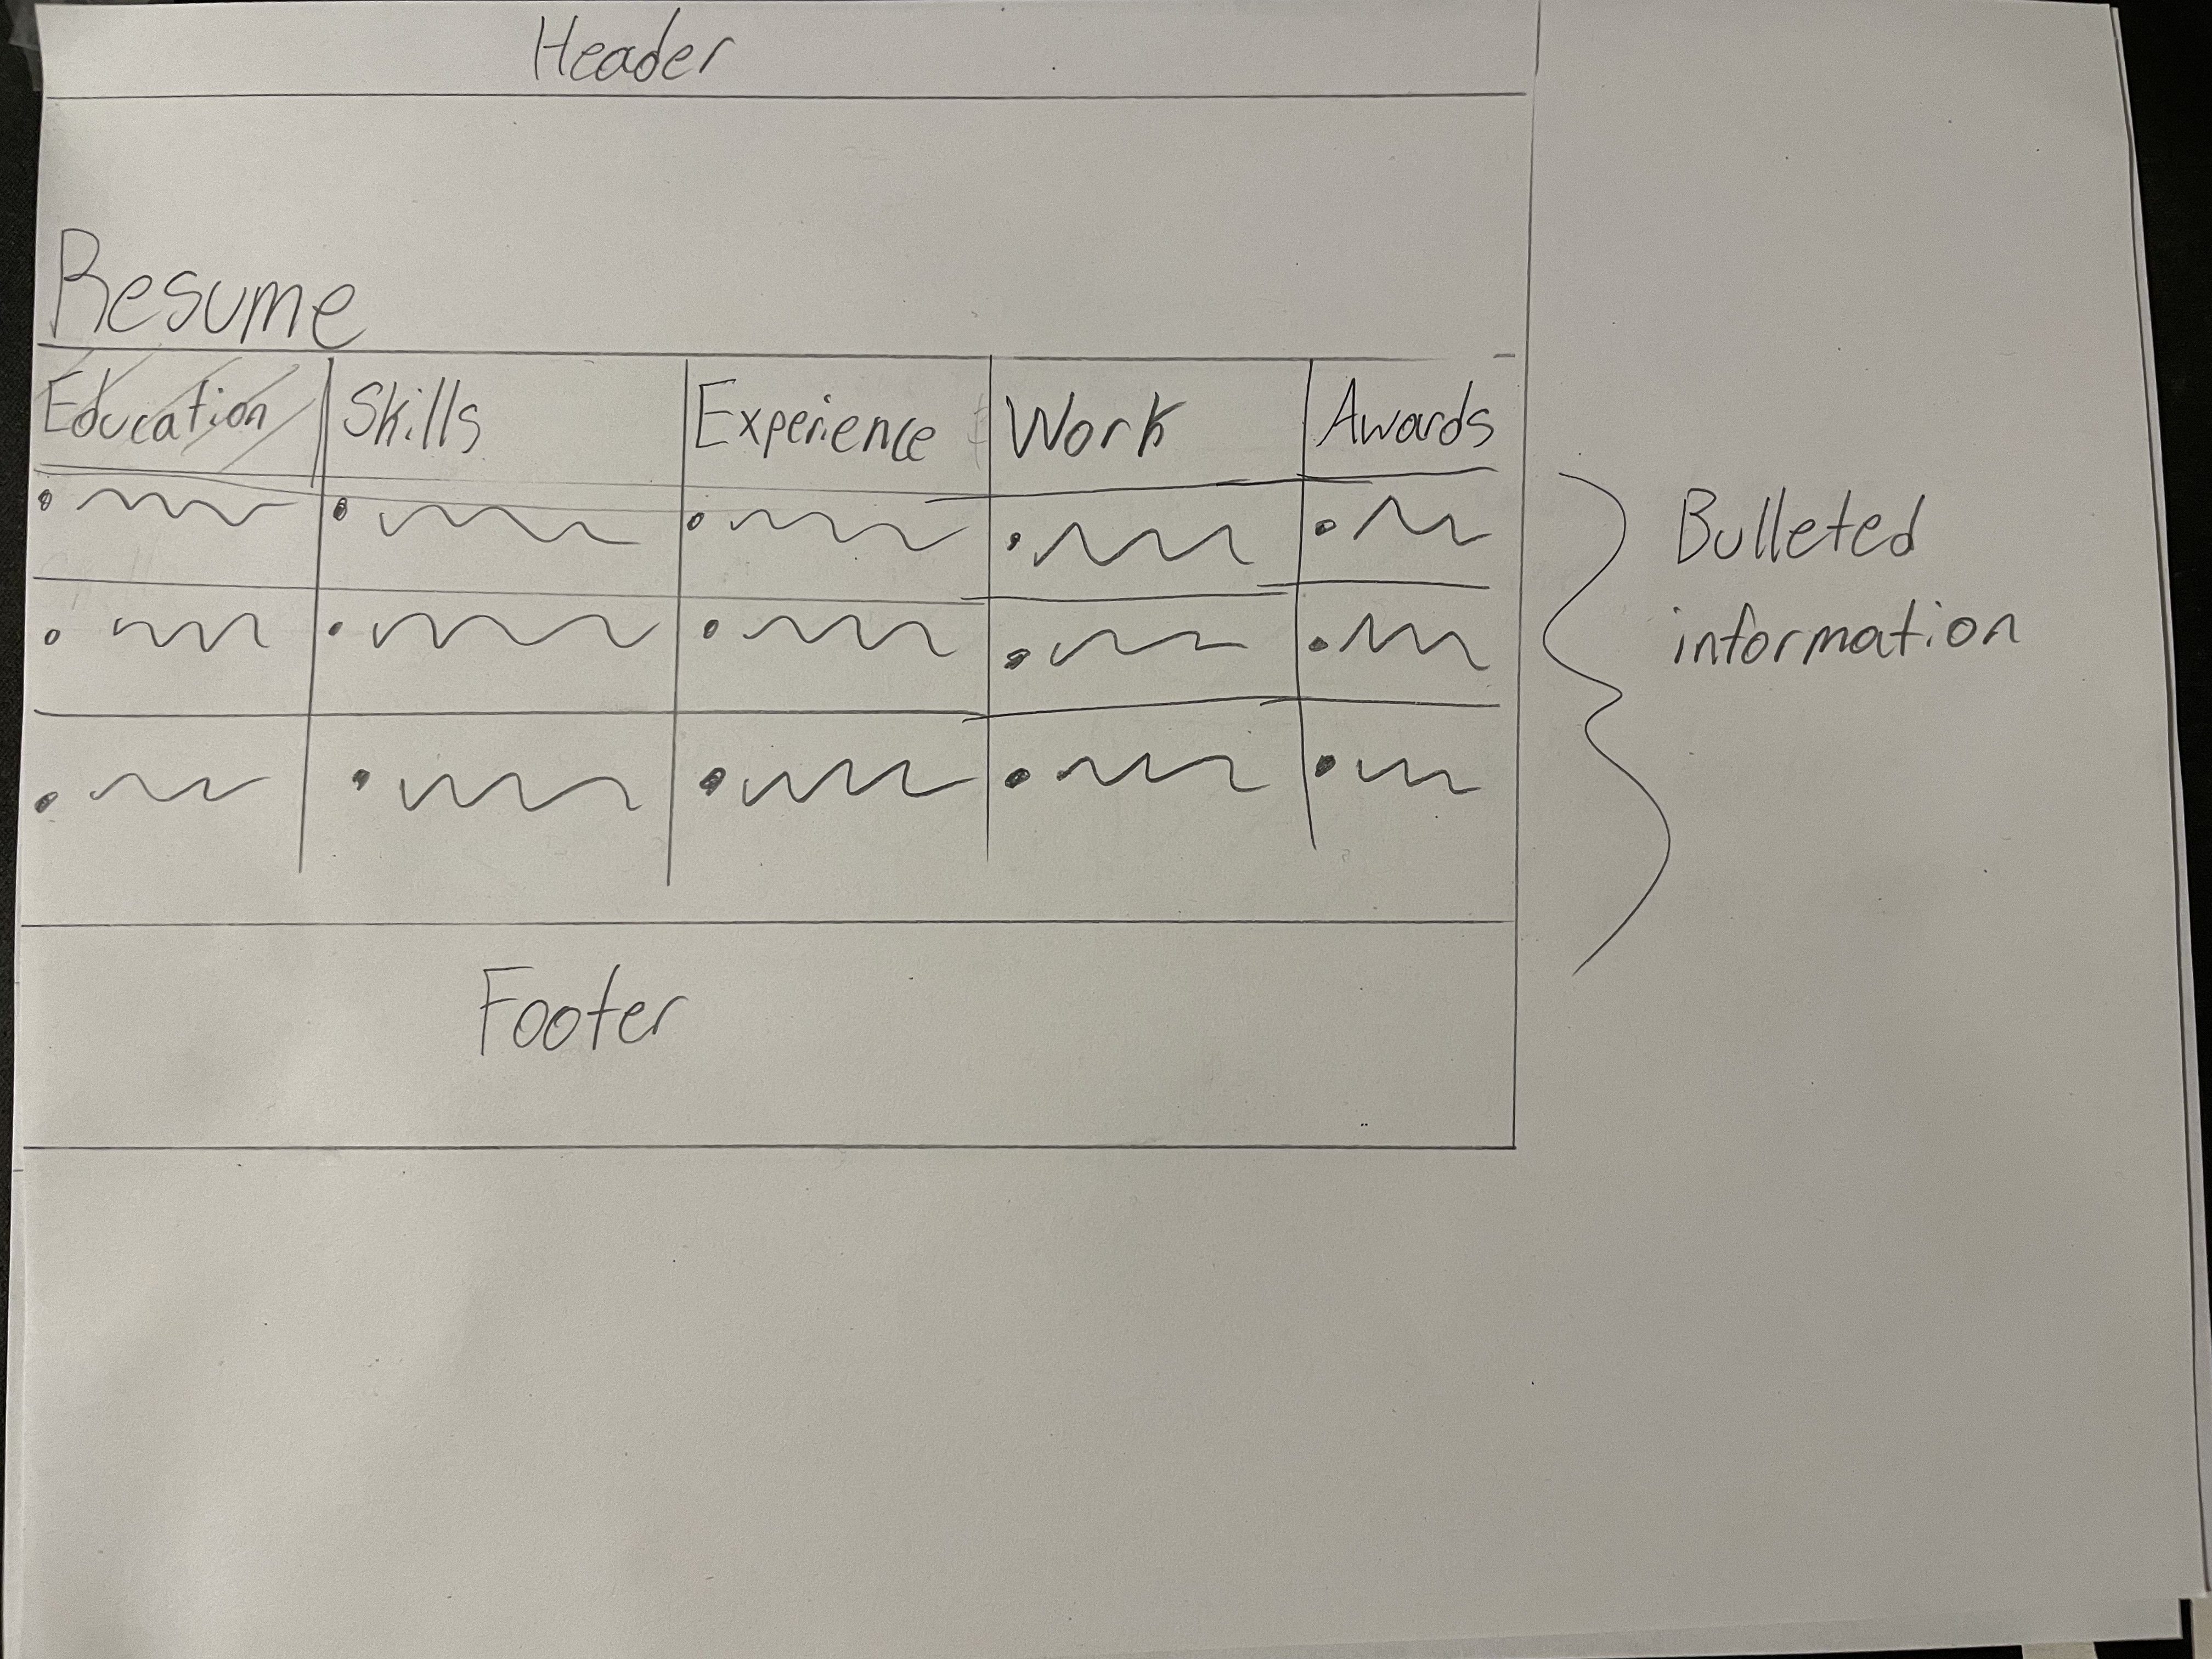 Header
Resume
Education Skills Experience Work Awards
Bulleted
information
Footer